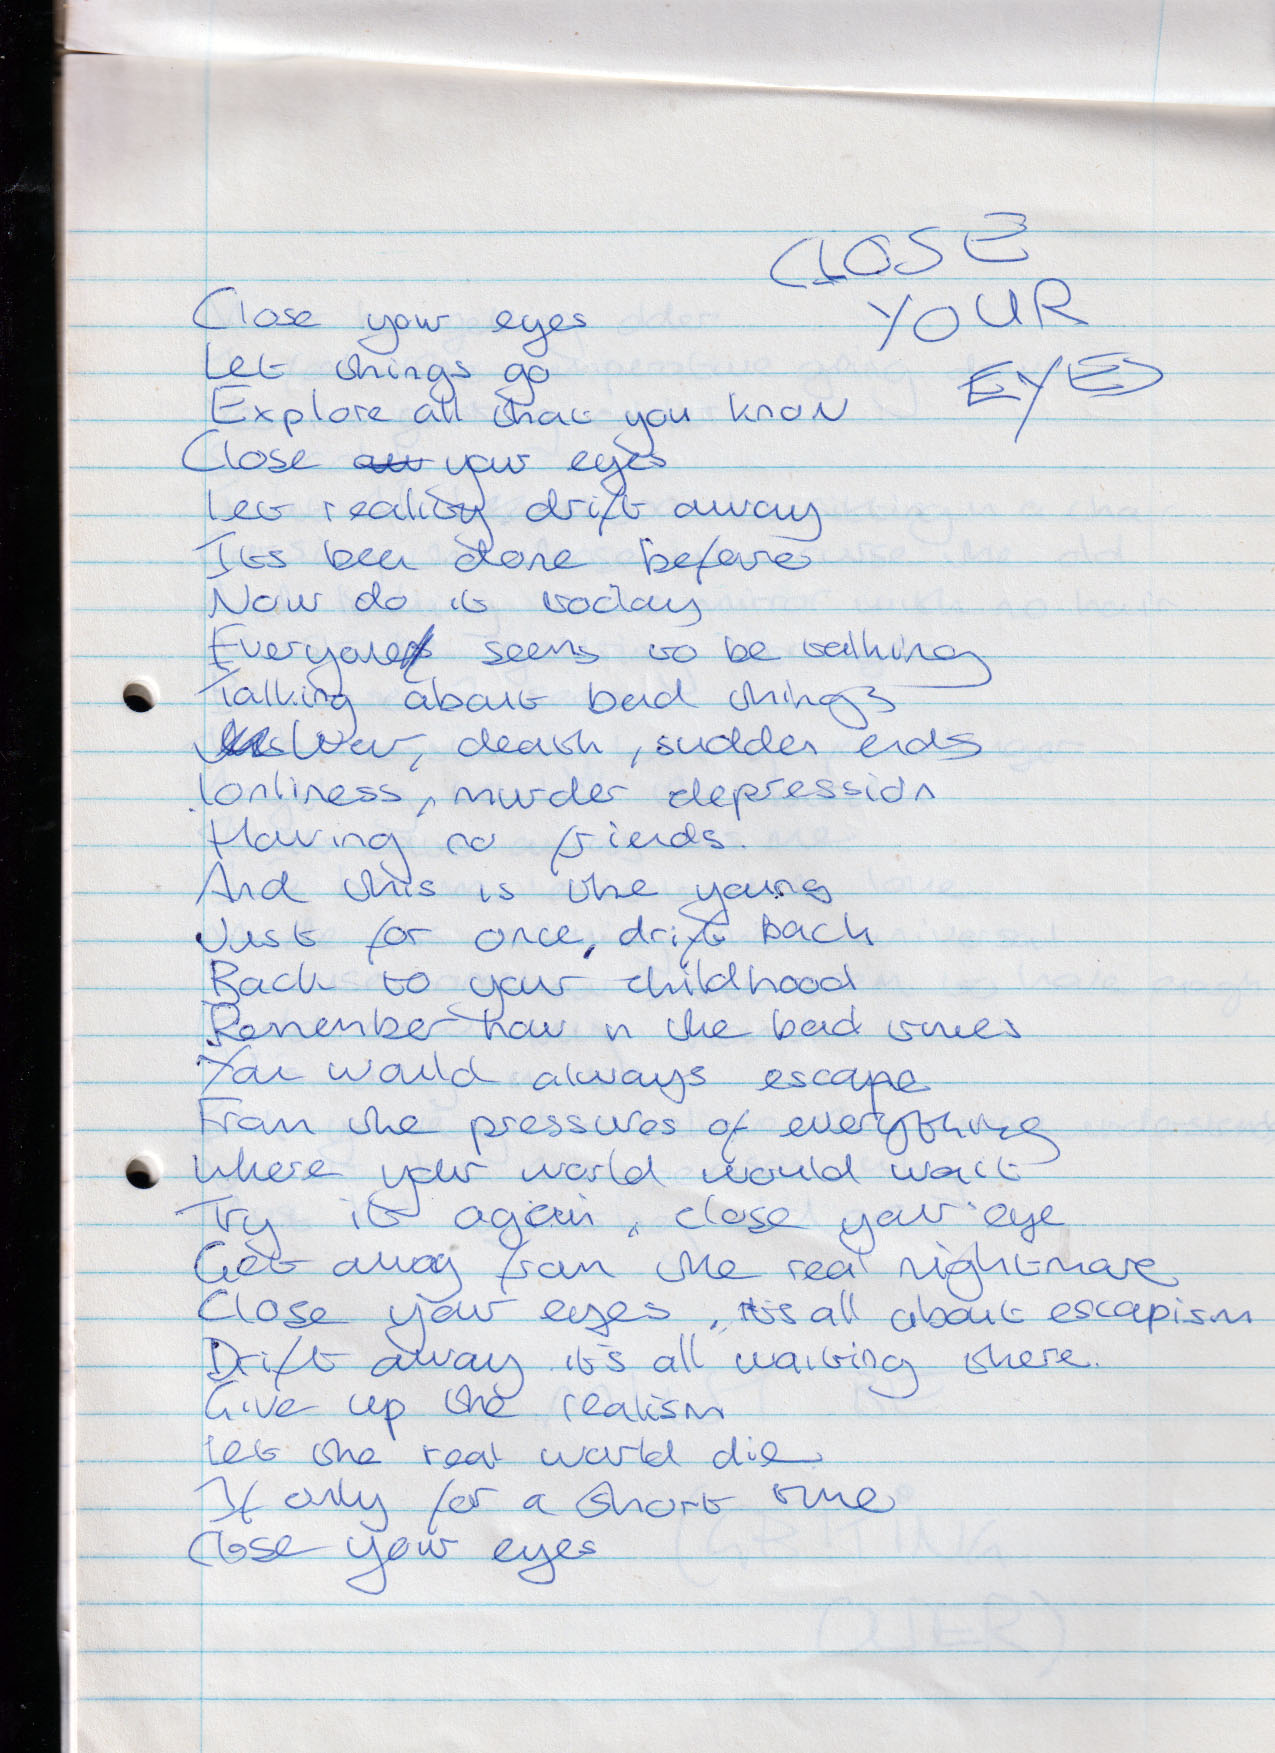 CLOSE
YOUR
EYES
Close your eyes
Let things go
Explore all that you know
Close your eyes
Let reality drift away
Its been done before
Now do it today
Everyone seems to be talking
Talking about bad things
War, death, sudden ends
lonliness, murder depression
Having no friends.
And this is the young
Just for once, drift back
Back to your childhood
Remember how in the bad times
You would always escape
From the pressures of everything
Where your world would wait
Try it again, close your eye
Get away from the real nightmare
Close your eyes, it's all about escapism
Drift away it's all waiting there.
Give up the realism
Let the real world die
If only for a short time
Close your eyes